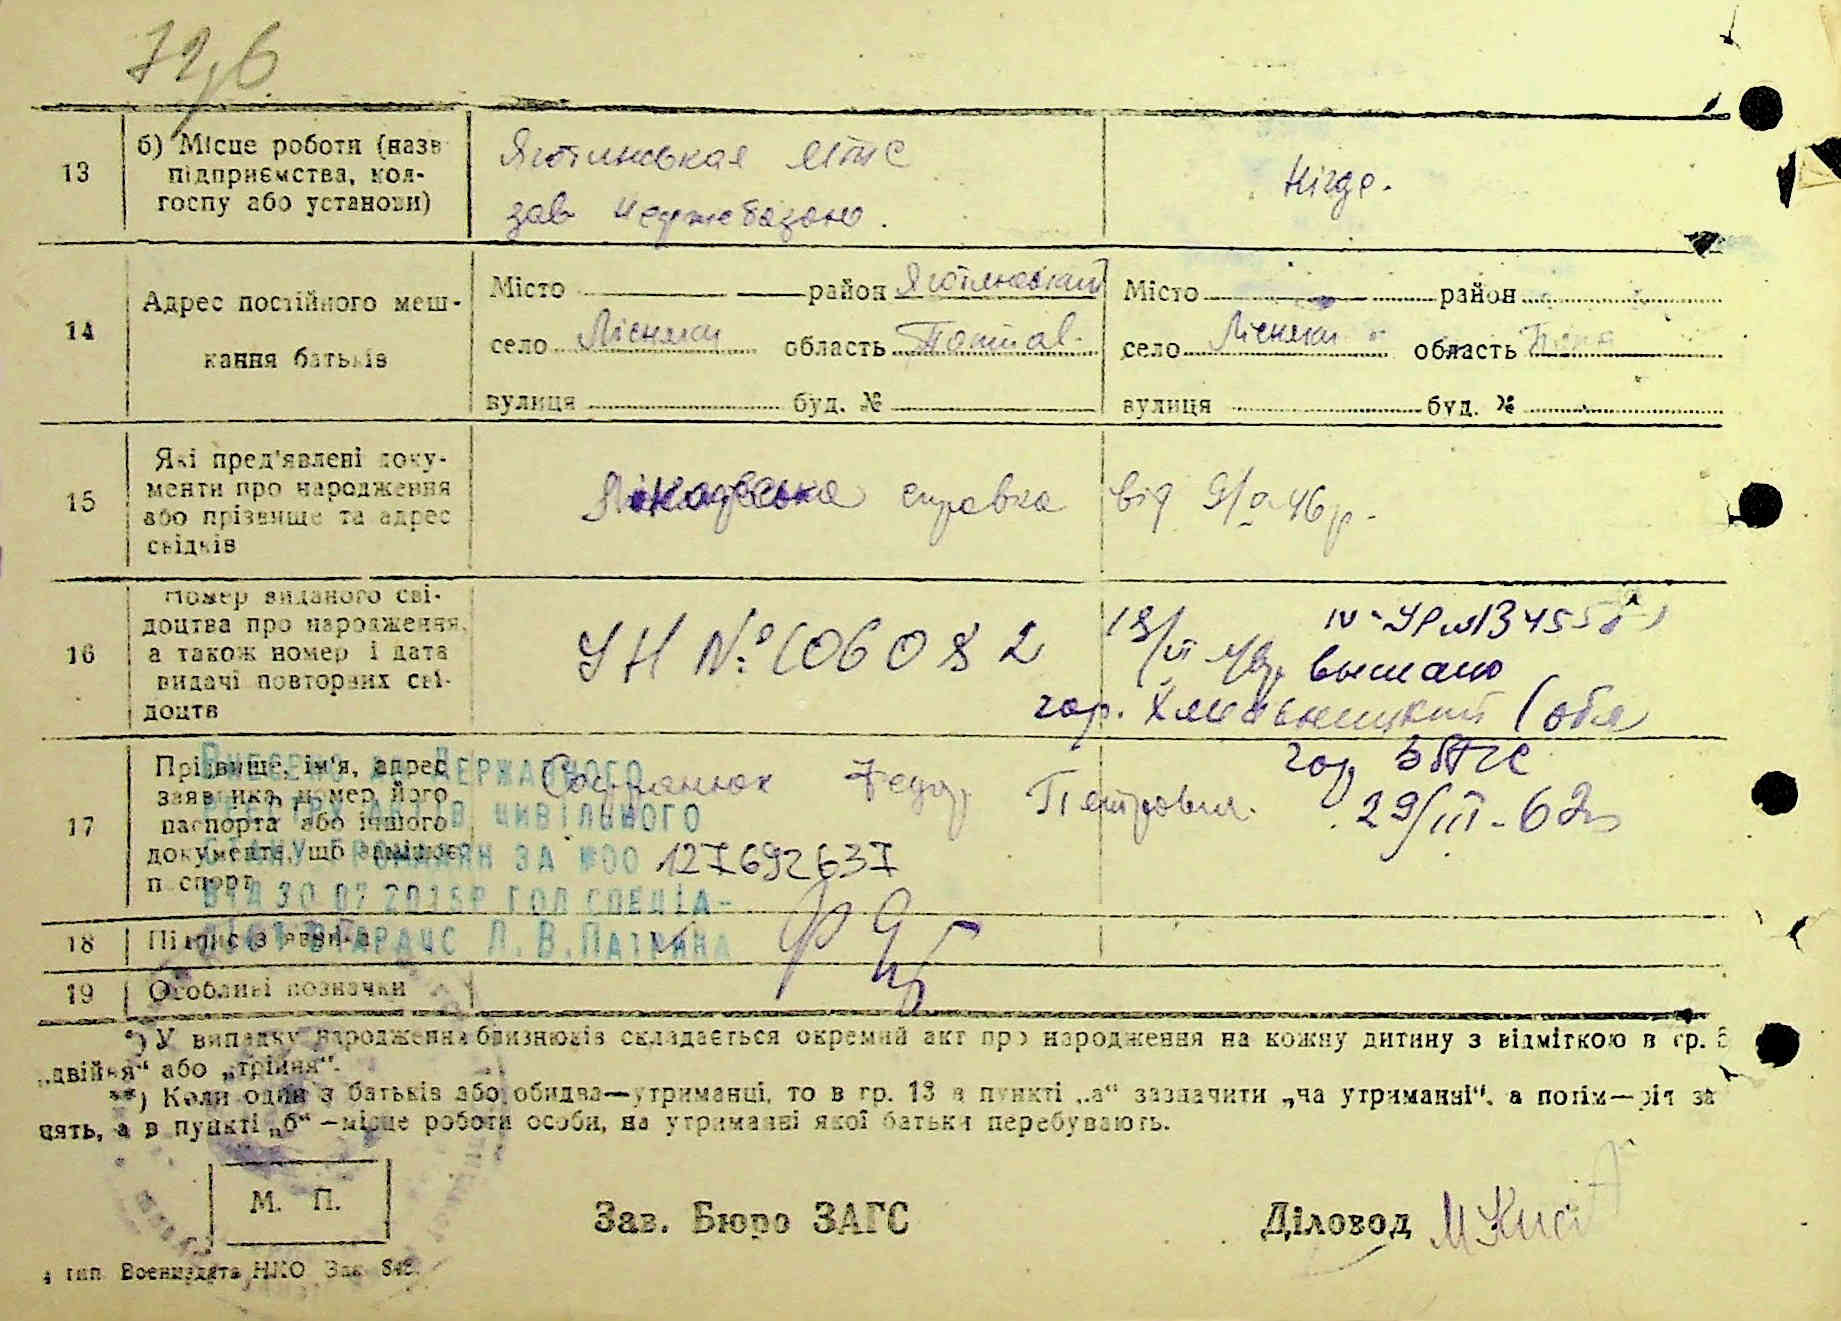 13 б) Місце роботи (назв
підприємства, кол-
госпу або установи)
Яготинськая МТС
зав нефтебазою.
Нігде.
14 Адрес постійного меш-
кання батьків
Місто район Яготинський
село Лісняки область Полтав.
вулиця буд. №
Місто район
село Лісняки область
вулиця буд. №
15 Які пред'явлені доку-
менти про народження
або прізвище та адрес
свідків
справка від 46р.
16 Номер виданого сві-
доцтва про народження,
а також номер і дата
видачі повторних сві-
доцтв
УН № 106082
выслано
гор. Хмельницкий (обл
гор ЗАГС
29/III-62
17 Прізвище, ім'я, адрес
заявника, номер його
паспорта або іншого
документа, що заміняє
паспорт
Федор Петрович.
Внесено до Державного
реєстру актів цивільного
стану громадян за №00 127692637
від 30 07 2015р гол спеціа-
ліст Л.В.
18 Підпис заявника
19 Особливі позначки
*) У випадку народження близнюків складається окремий акт про народження на кожну дитину з відміткою в гр.
„двійня“ або „трійня“.
**) Коли один з батьків або обидва—утриманці, то в гр. 13 в пункті „а“ зазначити „на утриманні“, а потім—рід за
нять, а в пункті „б“—місце роботи особи, на утриманні якої батьки перебувають.
М. П.
Зав. Бюро ЗАГС
Діловод
4 тип. Воениздата НКО Зак.